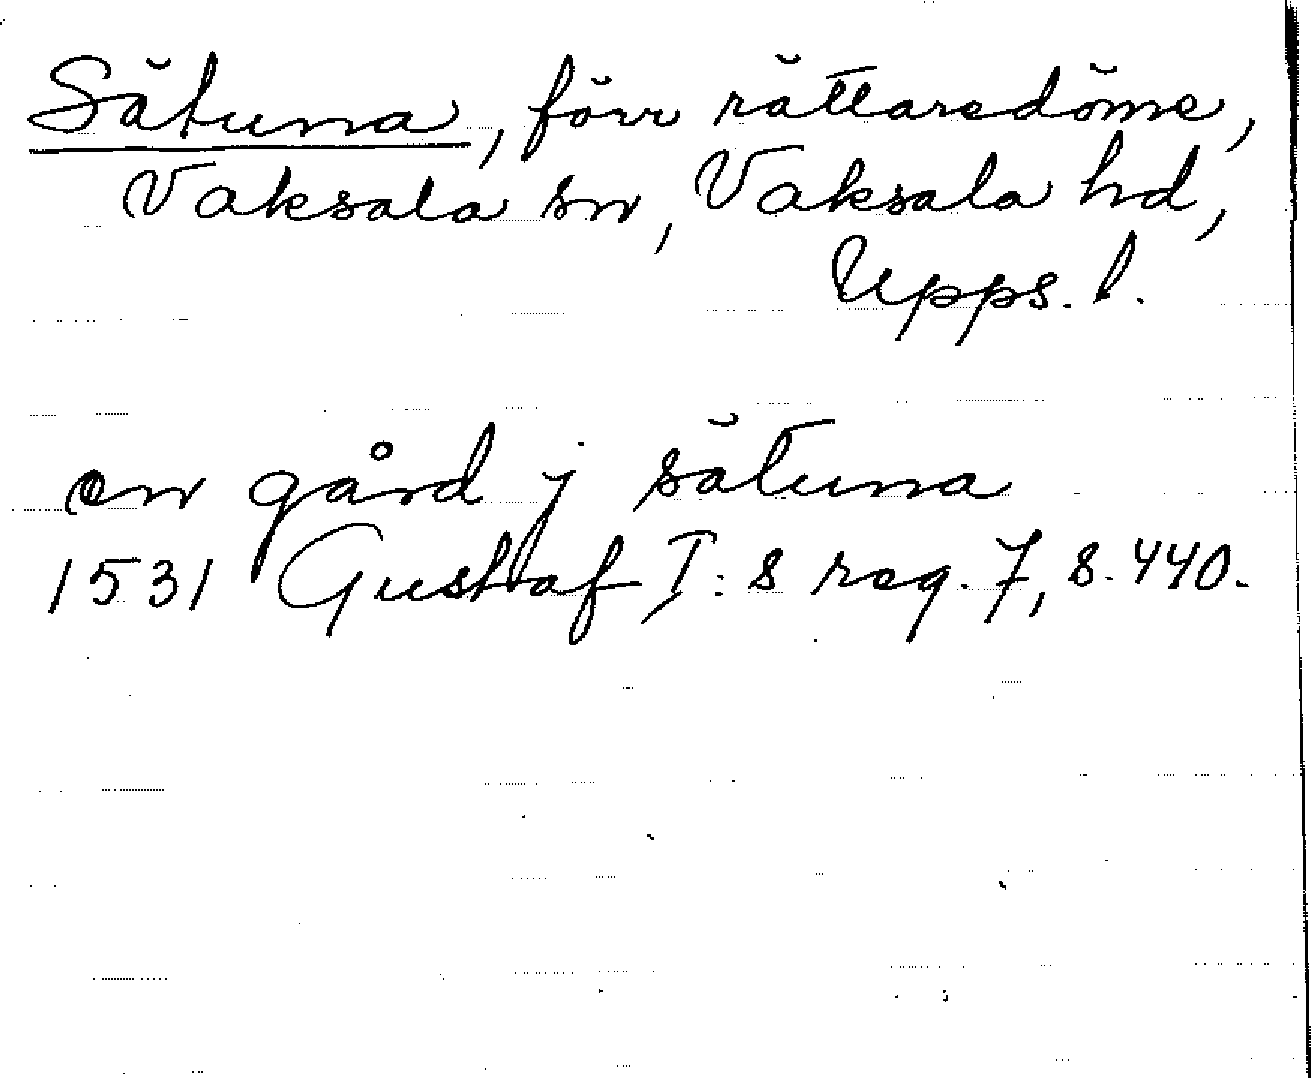 Sätuna, förr rättaredöme,
Vaksala sn, Vaksala hd,
Upps. l.
en gård j sätuna
1531 Gustaf I:s reg. 7, s. 440.